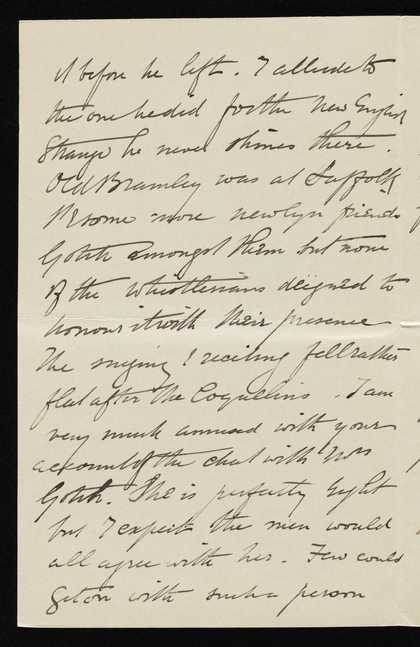 it before he left. I allude to
the one he did for the New English
Strange he never shines there.
Old Bramley was at Suffolk
St some more newlyn friends
Gotch amongst them but none
of the Whistlerians deigned to
honour it with their presence
The singing & reciting fell rather
flat after the Coquelins. I am
very much amused with your
account of the chat with Mrs
Gotch. She is perfectly right
but I expect the men would
all agree with her. Few could
get on with such a person